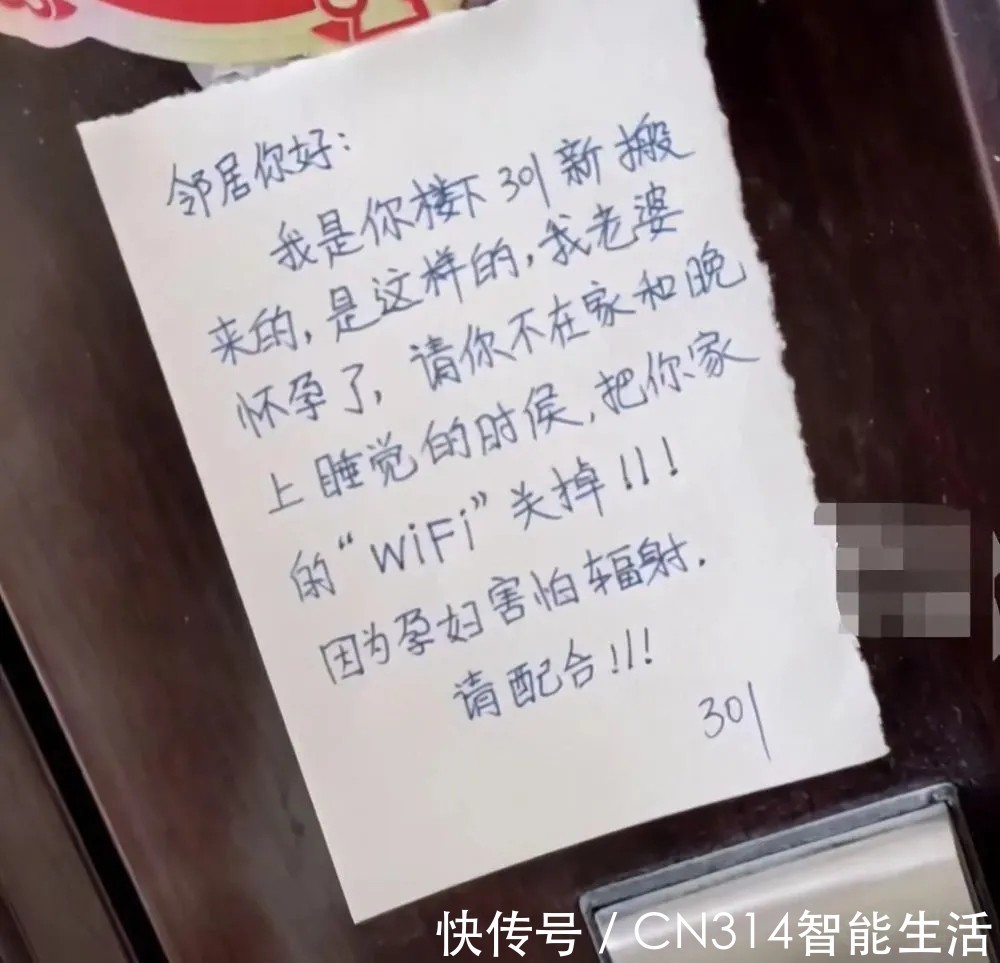 邻居你好：
我是你楼下301新搬
来的，是这样的，我老婆
怀孕了，请你不在家和晚
上睡觉的时侯，把你家
的“WiFi”关掉！！！
因为孕妇害怕辐射．
请配合！！！
301
快传号 / CN314智能生活